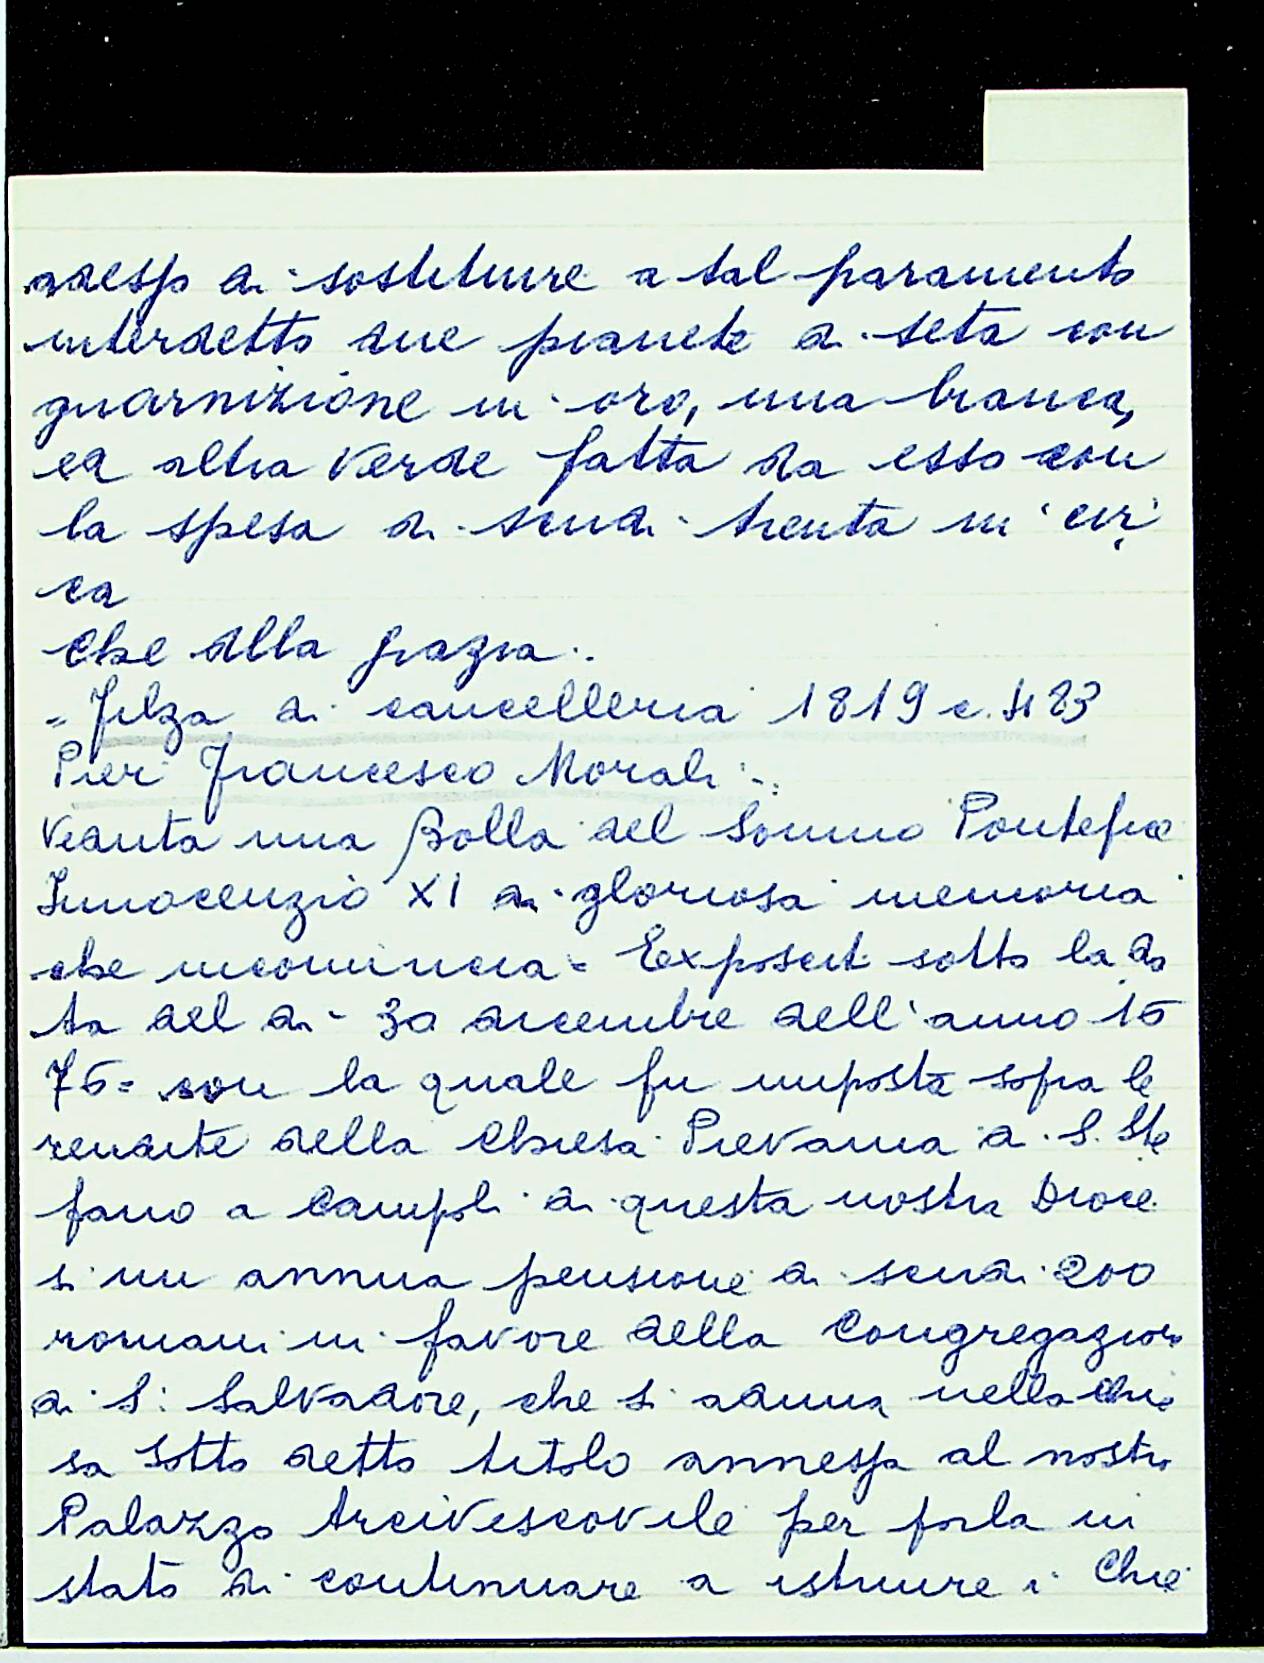 adesso di sostituire a tal paramento
interdetto due pianete di seta con
guarnizione in oro, una bianca,
ed altra verde fatta da esso con
la spesa di scudi trenta in cir
ca
Che alla grazia.
= Filza di cancelleria 1819 c. 483
Pier Francesco Morali =
Veduta una Bolla del Sommo Pontefice
Innocenzio XI di gloriosa memoria
che incomincia = Exposcit sotto la da
ta del dì 30 dicembre dell'anno 16
76 = con la quale fu imposta sopra le
rendite della Chiesa Prevania di S. Ste
fano a Campoli di questa nostra Dioce
si un annua pensione di scudi 200
romani in favore della Congregazione
di S. Salvadore, che si aduna nella Chie
sa sotto detto titolo annessa al nostro
Palazzo Arcivescovile per porla in
stato di continuare a istruire i Chie